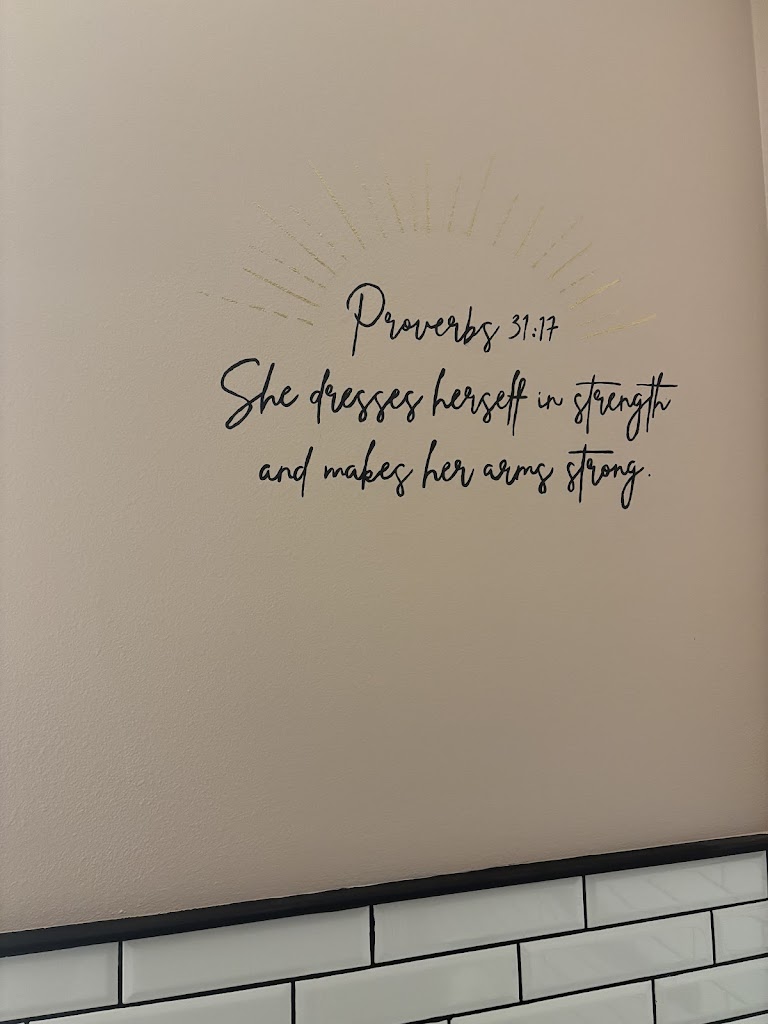 Proverbs 31:17
She dresses herself in strength
and makes her arms strong.